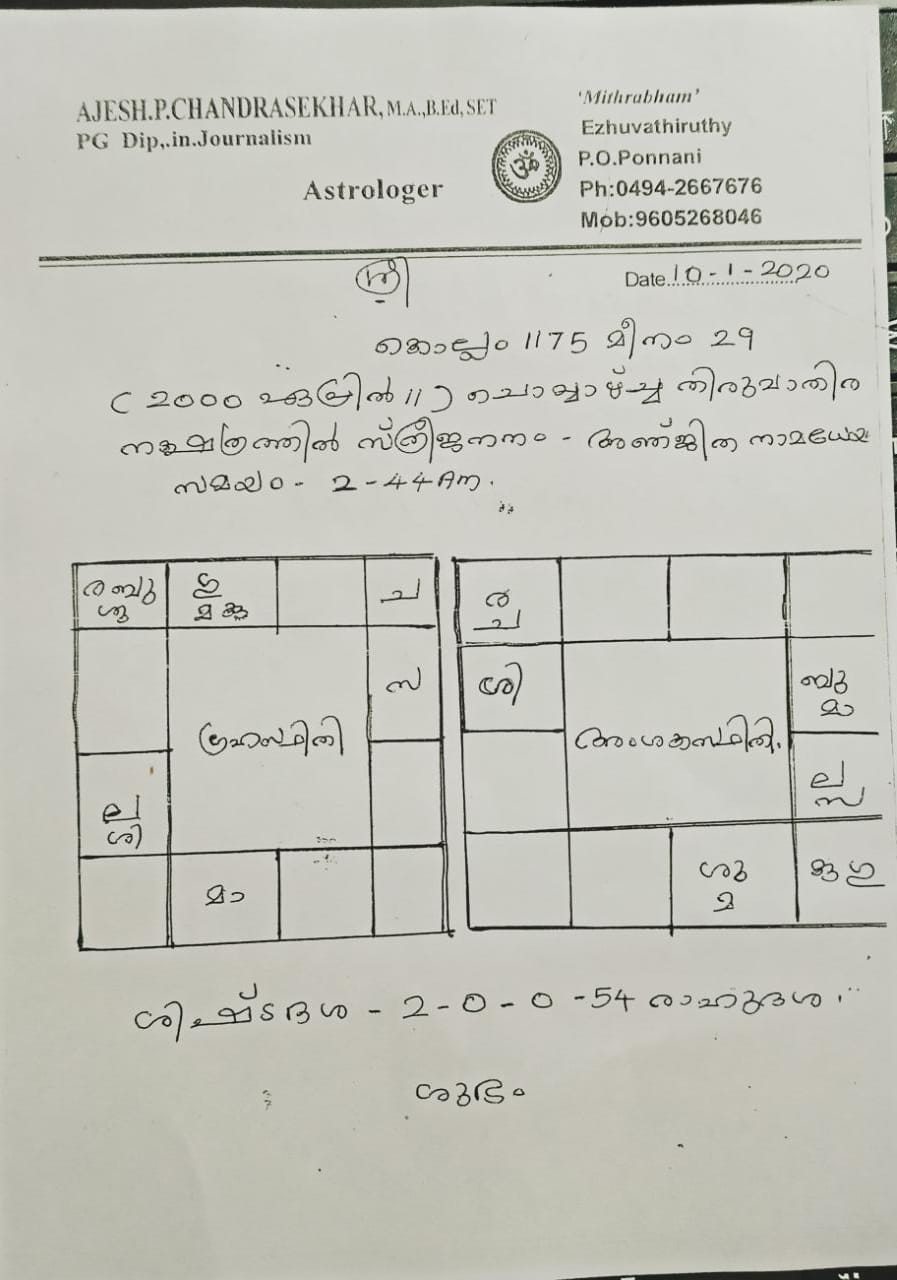 AJESH.P.CHANDRASEKHAR, M.A.,B.Ed, SET
PG Dip,.in.Journalism
Astrologer
ॐ
'Mithrabham'
Ezhuvathiruthy
P.O.Ponnani
Ph:0494-2667676
Mob:9605268046
ശ്രീ
Date 10-1-2020
കൊല്ലം 1175 മീനം 29
( 2000 ഏപ്രിൽ 11 ) ചൊവ്വാഴ്ച്ച തിരുവാതിര
നക്ഷത്രത്തിൽ സ്ത്രീജനനം - അഞ്ജിത നാമധേയ
സമയം - 2-44 Am.
ര ബു ഗു ച ര
ശു മ കു ച
സ ശി ബു
ഗ്രഹസ്ഥിതി അംശകസ്ഥിതി. മാ
ല ല
ശി സ
മാ ശു കു ഗു
മ
ശിഷ്ടദശ - 2-0-0-54 രാഹുദശ
ശുഭം